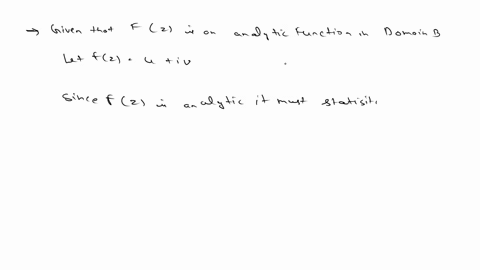 → Given that F(z) is an analytic Function in Domain B
Let f(z) = u + iv
Since F(z) is analytic it must statisit.